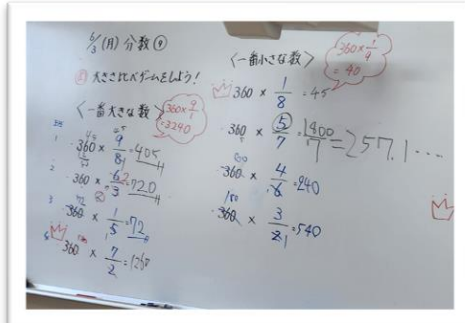 6/3(月)分数⑨
め 大きさ比べゲームをしよう!
〈一番大きな数〉
360×9/1
=3240
360 × 9/8 = 405
360 × 6/3 = 720
360 × 1/5 = 72
360 × 7/2 = 1260
〈一番小さな数〉
360×1/9
=40
360 × 1/8 = 45
360 × 5/7 = 1800/7 = 257.1....
360 × 4/6 = 240
360 × 3/2 = 540